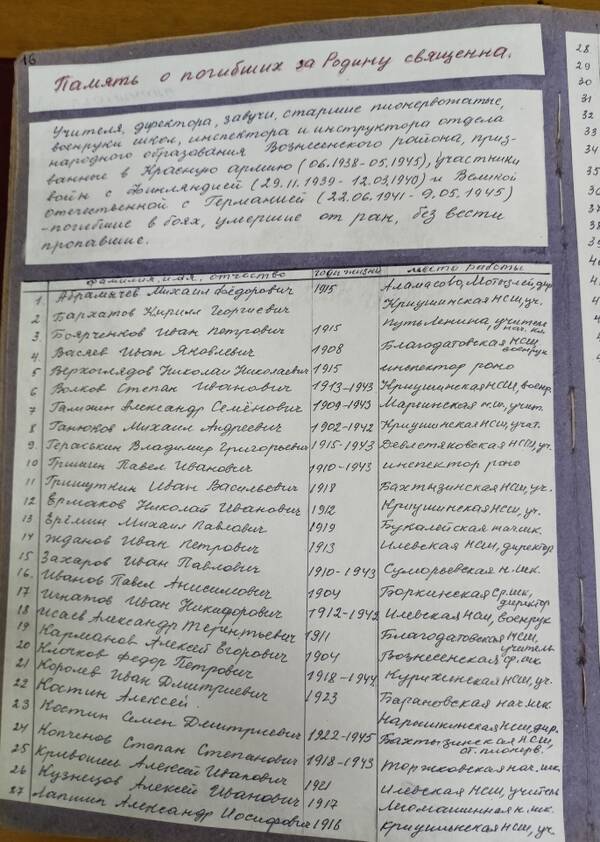 16
Память о погибших за Родину священна.
Учителя, директора, завучи, старшие пионервожатые,
военруки школ, инспектора и инструктора отдела
народного образования Вознесенского района, приз-
ванные в Красную армию (06.1938-05.1945), участники
войн с Финляндией (29.11.1939- 12.03.1940) и Великой
отечественной с Германией (22.06.1941-9.05.1945)
-погибшие в боях, умершие от ран, без вести
пропавшие.
фамилия, имя, отчество годы жизни место работы
1. Абрамычев Михаил Фёдорович 1915 Аламасово, дир.
2 Бархатов Кирилл Георгиевич Криушинская НСШ, уч.
3. Боярченков Иван Петрович 1915 Путь Ленина, учитель нач. шк.
4. Васяев Иван Яковлевич 1908 Благодатовская НСШ, военрук
5 Верхоглядов Николай Николаевич 1915 инспектор роно
6 Волков Степан Иванович 1913-1943 Криушинская НСШ, военр.
7 Гамзин Александр Семёнович 1909-1943 Марьинская н.ш., учит.
8 Ганюков Михаил Андреевич 1902-1942 Криушинская НСШ, учит.
9. Гераськин Владимир Григорьевич 1915-1943 Девлетяковская НСШ, уч.
10 Гришин Павел Иванович 1910-1943 инспектор роно
11 Гришуткин Иван Васильевич 1918 Бахтызинская НСШ, уч.
12 Ермаков Николай Иванович 1912 Криушинская НСШ, уч.
13 Ерёмин Михаил Павлович 1919 Букалейская нач.шк.
14 Жданов Иван Петрович 1913 Илевская НСШ, директор
15 Захаров Иван Павлович 1910-1943 Суморьевская н.шк.
16. Иванов Павел Анисимович 1904 Боркинская ср.шк, директор
17 Игнатов Иван Никифорович 1912-1942 Илевская НСШ, военрук
18 Исаев Александр Терентьевич 1911 Благодатовская НСШ, учитель
19 Карманов Алексей Егорович 1904 Вознесенская ср.шк
20 Клочков Федор Петрович 1918-1944 Курихинская НСШ, уч.
21 Королев Иван Дмитриевич 1923 Барановская нач.шк.
22 Костин Алексей Нарышкинская НСШ, дир.
23 Костин Семен Дмитриевич 1922-1945 Бахтызинская НСШ, ст. пионерв.
24 Копченов Степан Степанович 1918-1943 Торжковская нач. шк.
25 Кривошеев Алексей Иванович 1921 Илевская НСШ, учитель
26 Кузнецов Алексей Иванович 1917 Легомашинная н.шк.
27 Лапшин Александр Иосифович 1916 Криушинская НСШ, уч.
28
29
30
31
32
33
34
35
36
37
38
39
40